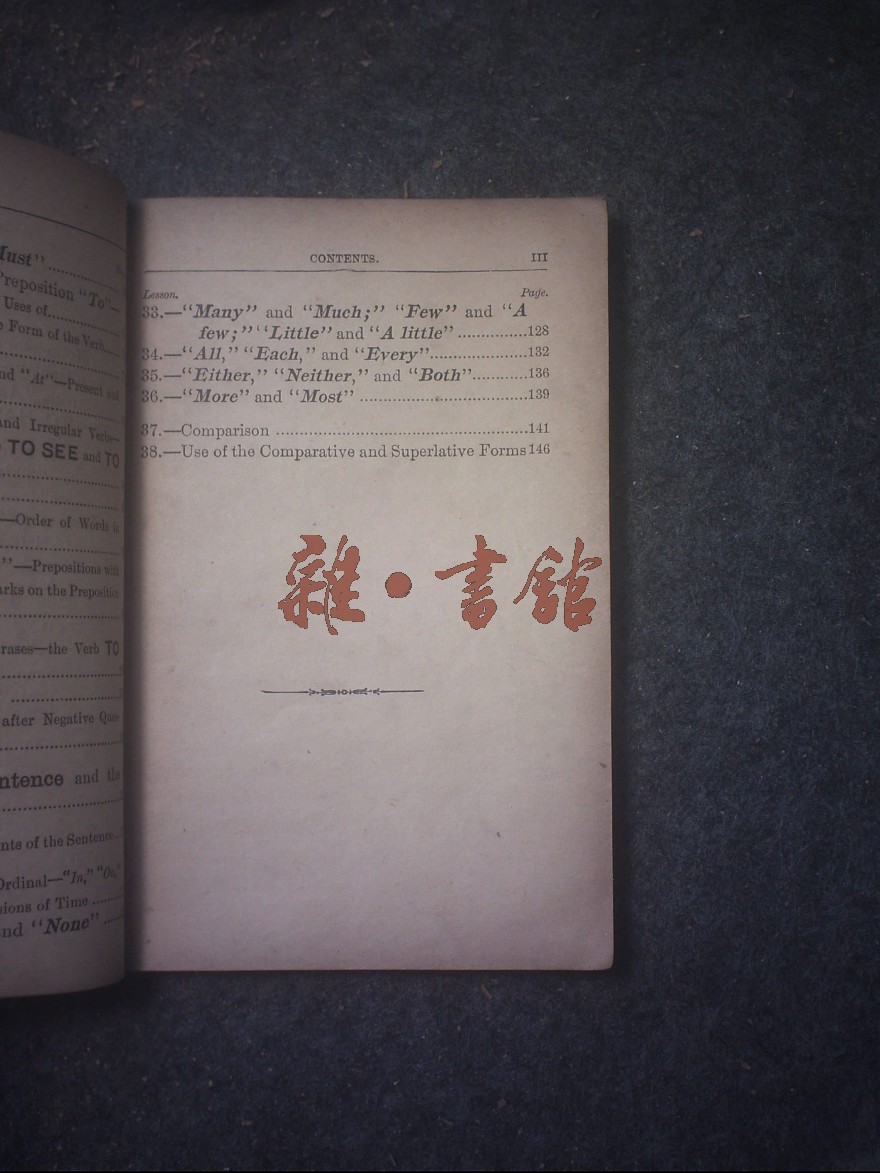 Must"
Preposition "To"—
Uses of
Form of the Verb
nd "At"—Present and
and Irregular Verbs—
TO SEE and TO
—Order of Words in
"—Prepositions with
rks on the Preposition
rases—the Verb TO
after Negative Ques-
ntence and the
nts of the Sentence
Ordinal—"In," "On,"
sions of Time
nd "None"
CONTENTS. III
Lesson. Page.
33.—"Many" and "Much;" "Few" and "A
few;" "Little" and "A little" ...............128
34.—"All," "Each," and "Every".....................132
35.—"Either," "Neither," and "Both"............136
36.—"More" and "Most" ....................................139
37.—Comparison ......................................................141
38.—Use of the Comparative and Superlative Forms 146
雜·書館